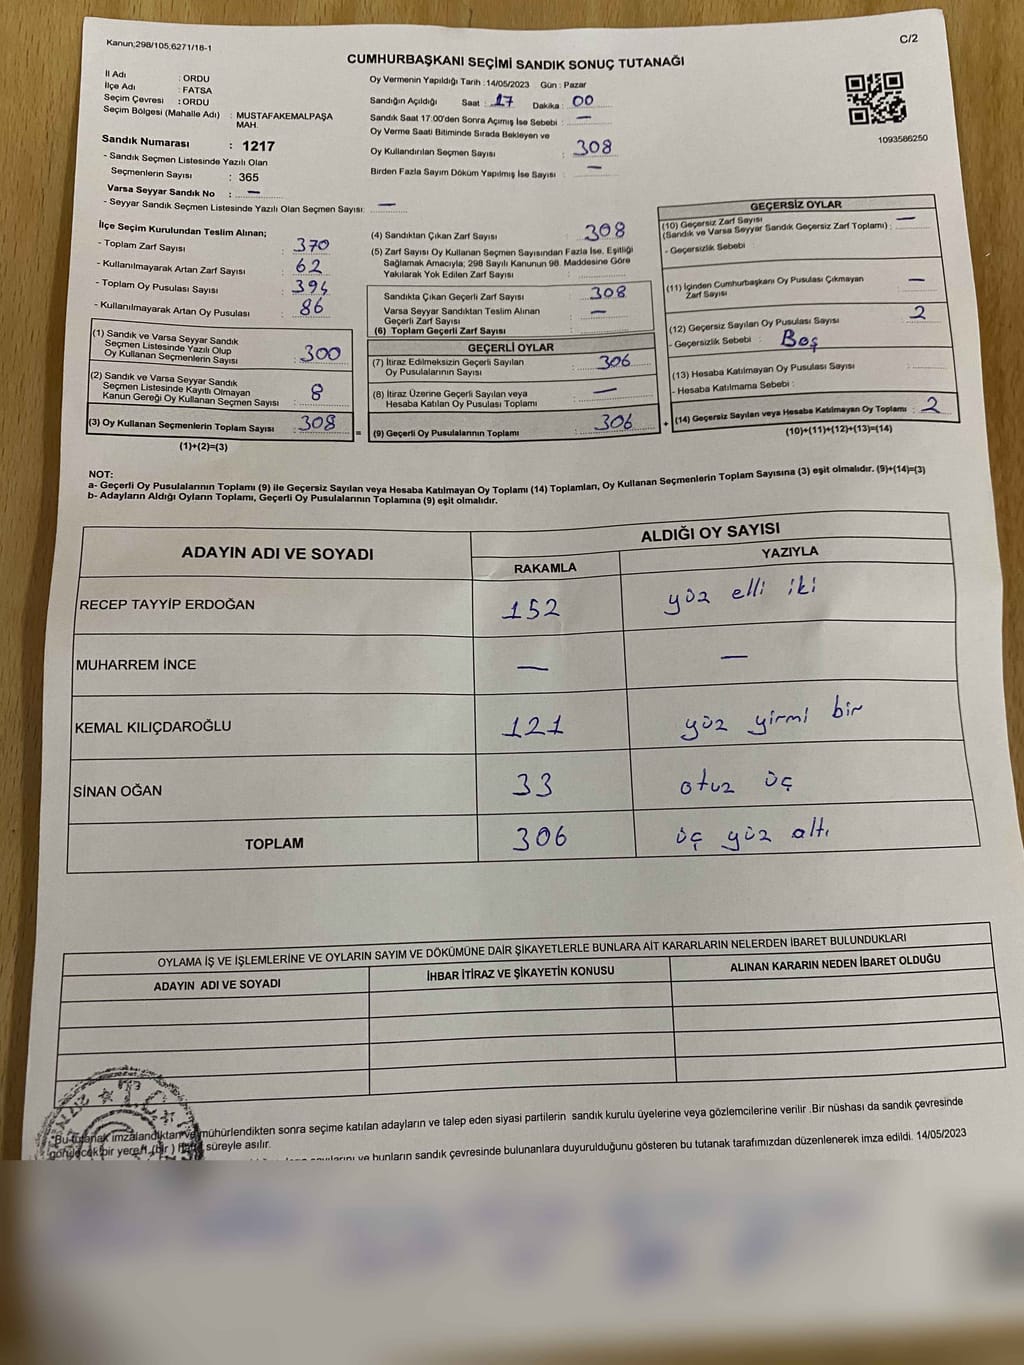 Kanun;298/105,6271/18-1
C/2
CUMHURBAŞKANI SEÇİMİ SANDIK SONUÇ TUTANAĞI
İl Adı : ORDU
İlçe Adı : FATSA
Seçim Çevresi : ORDU
Seçim Bölgesi (Mahalle Adı) : MUSTAFAKEMALPAŞA
MAH.
Sandık Numarası : 1217
- Sandık Seçmen Listesinde Yazılı Olan
Seçmenlerin Sayısı : 365
Varsa Seyyar Sandık No : —
- Seyyar Sandık Seçmen Listesinde Yazılı Olan Seçmen Sayısı: —
Oy Vermenin Yapıldığı Tarih : 14/05/2023 Gün : Pazar
Sandığın Açıldığı Saat : 17 Dakika : 00
Sandık Saat 17:00'den Sonra Açımış İse Sebebi : —
Oy Verme Saati Bitiminde Sırada Bekleyen ve
Oy Kullandırılan Seçmen Sayısı : 308
Birden Fazla Sayım Döküm Yapılmış İse Sayısı : —
1093586250
İlçe Seçim Kurulundan Teslim Alınan;
- Toplam Zarf Sayısı : 370
- Kullanılmayarak Artan Zarf Sayısı : 62
- Toplam Oy Pusulası Sayısı : 394
- Kullanılmayarak Artan Oy Pusulası : 86
(1) Sandık ve Varsa Seyyar Sandık
Seçmen Listesinde Yazılı Olup
Oy Kullanan Seçmenlerin Sayısı : 300
(2) Sandık ve Varsa Seyyar Sandık
Seçmen Listesinde Kayıtlı Olmayan
Kanun Gereği Oy Kullanan Seçmen Sayısı : 8
(3) Oy Kullanan Seçmenlerin Toplam Sayısı : 308
(1)+(2)=(3)
(4) Sandıktan Çıkan Zarf Sayısı : 308
(5) Zarf Sayısı Oy Kullanan Seçmen Sayısından Fazla İse, Eşitliği
Sağlamak Amacıyla; 298 Sayılı Kanunun 98. Maddesine Göre
Yakılarak Yok Edilen Zarf Sayısı :
Sandıkta Çıkan Geçerli Zarf Sayısı : 308
Varsa Seyyar Sandıktan Teslim Alınan
Geçerli Zarf Sayısı : —
(6) Toplam Geçerli Zarf Sayısı :
GEÇERLİ OYLAR
(7) İtiraz Edilmeksizin Geçerli Sayılan
Oy Pusulalarının Sayısı : 306
(8) İtiraz Üzerine Geçerli Sayılan veya
Hesaba Katılan Oy Pusulası Toplamı : —
= (9) Geçerli Oy Pusulalarının Toplamı : 306 +
GEÇERSİZ OYLAR
(10) Geçersiz Zarf Sayısı
(Sandık ve Varsa Seyyar Sandık Geçersiz Zarf Toplamı) : —
- Geçersizlik Sebebi
(11) İçinden Cumhurbaşkanı Oy Pusulası Çıkmayan
Zarf Sayısı : —
(12) Geçersiz Sayılan Oy Pusulası Sayısı : 2
- Geçersizlik Sebebi : Boş
(13) Hesaba Katılmayan Oy Pusulası Sayısı :
- Hesaba Katılmama Sebebi :
(14) Geçersiz Sayılan veya Hesaba Katılmayan Oy Toplamı : 2
(10)+(11)+(12)+(13)=(14)
NOT:
a- Geçerli Oy Pusulalarının Toplamı (9) ile Geçersiz Sayılan veya Hesaba Katılmayan Oy Toplamı (14) Toplamları, Oy Kullanan Seçmenlerin Toplam Sayısına (3) eşit olmalıdır. (9)+(14)=(3)
b- Adayların Aldığı Oyların Toplamı, Geçerli Oy Pusulalarının Toplamına (9) eşit olmalıdır.
ADAYIN ADI VE SOYADI
ALDIĞI OY SAYISI
RAKAMLA YAZIYLA
RECEP TAYYİP ERDOĞAN 152 yüz elli iki
MUHARREM İNCE — —
KEMAL KILIÇDAROĞLU 121 yüz yirmi bir
SİNAN OĞAN 33 otuz üç
TOPLAM 306 üç yüz altı
OYLAMA İŞ VE İŞLEMLERİNE VE OYLARIN SAYIM VE DÖKÜMÜNE DAİR ŞİKAYETLERLE BUNLARA AİT KARARLARIN NELERDEN İBARET BULUNDUKLARI
ADAYIN ADI VE SOYADI İHBAR İTİRAZ VE ŞİKAYETİN KONUSU ALINAN KARARIN NEDEN İBARET OLDUĞU
T.C.
"Bu tutanak imzalandıktan ve mühürlendikten sonra seçime katılan adayların ve talep eden siyasi partilerin sandık kurulu üyelerine veya gözlemcilerine verilir .Bir nüshası da sandık çevresinde
görülecek bir yere 1 (bir ) hafta süreyle asılır.
ve bunların sandık çevresinde bulunanlara duyurulduğunu gösteren bu tutanak tarafımızdan düzenlenerek imza edildi. 14/05/2023